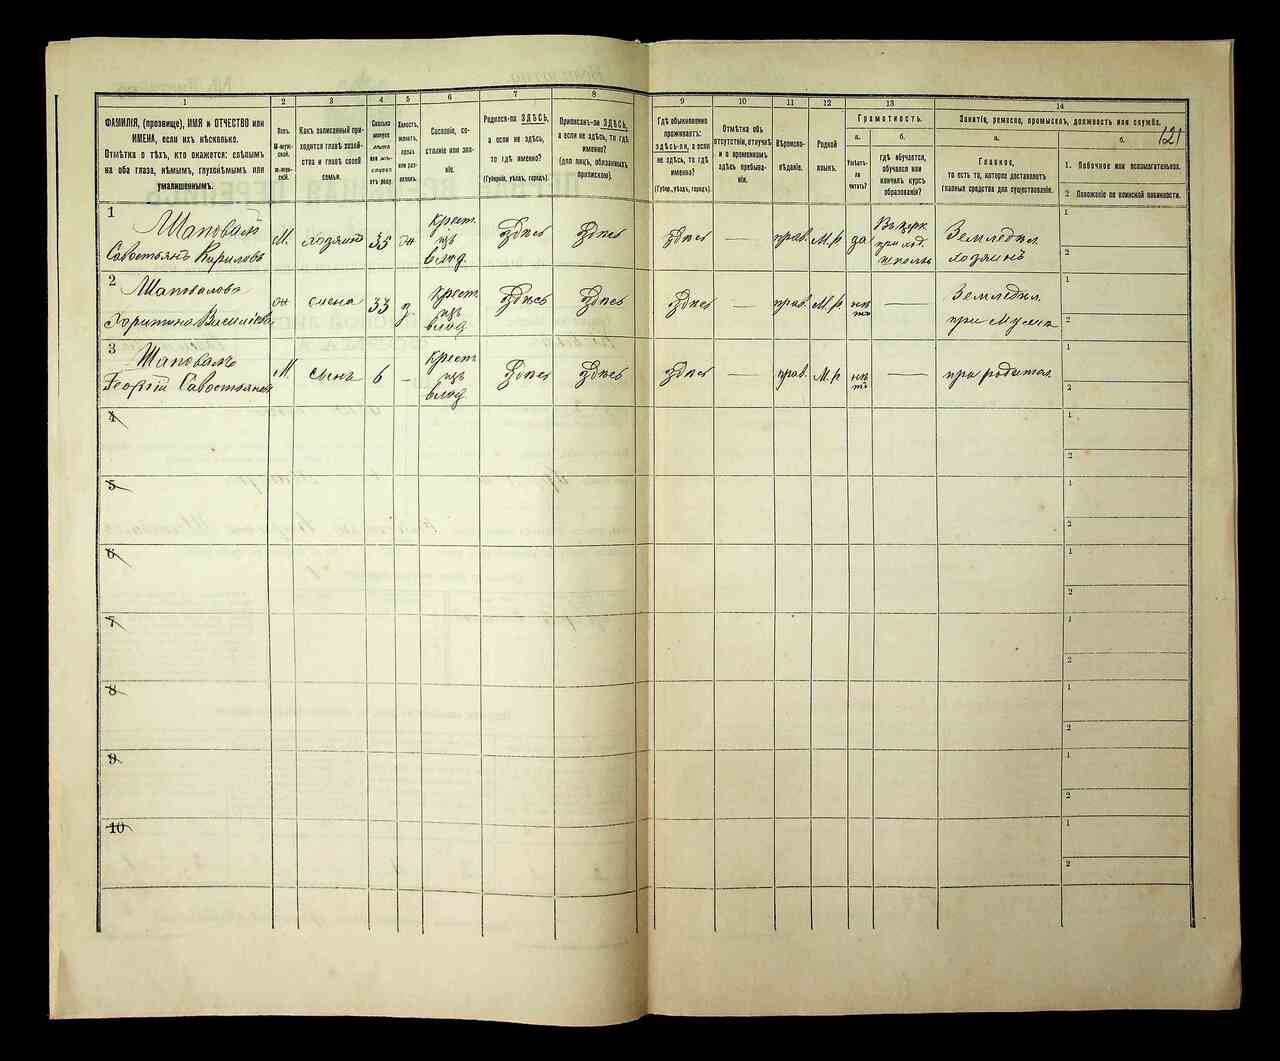 1
2
3
4
5
6
7
8
9
10
11
12
13
14
ФАМИЛІЯ, (прозвище), ИМЯ и ОТЧЕСТВО или
ИМЕНА, если ихъ нѣсколько.
Отмѣтка о тѣхъ, кто окажется: слѣпымъ
на оба глаза, нѣмымъ, глухонѣмымъ или
умалишеннымъ.
Полъ.
М-мужской.
Ж-женскій.
Какъ записанный при-
ходится главѣ хозяй-
ства и главѣ своей
семьи.
Сколько
минуло
лѣтъ
или мѣс-
отъ роду.
Холостъ,
женатъ,
вдовъ
или раз-
веденъ.
Сословіе, со-
стояніе или зва-
ніе.
Родился-ли ЗДѢСЬ,
а если не здѣсь,
то гдѣ именно?
(Губернія, уѣздъ, городъ).
Приписанъ-ли ЗДѢСЬ,
а если не здѣсь, то гдѣ
именно?
(для лицъ, обязанныхъ
припискою).
Гдѣ обыкновенно
проживаетъ:
здѣсь-ли, а если
не здѣсь, то гдѣ
именно?
(Губер., уѣздъ, городъ).
Отмѣтка объ
отсутствіи, отлучкѣ
и о временномъ
здѣсь пребыва-
ніи.
Вѣроиспо-
вѣданіе.
Родной
языкъ.
Грамотность.
а.
б.
Умѣетъ-
ли
читать?
гдѣ обучается,
обучался или
кончилъ курсъ
образованія?
Занятіе, ремесло, промыселъ, должность или служба.
121
а.
б.
Главное,
то есть то, которое доставляетъ
главныя средства для существованія.
1. Побочное или вспомогательное.
2 Положеніе по воинской повинности.
1
Шаповалъ
Савостьянъ Кириловъ
М.
хозяинъ
35
ж
крест.
изъ
влад.
здѣсь
здѣсь
здѣсь
—
прав.
М.р
да
Въ церк.
приход.
школѣ
Земледѣл.
хозяинъ
1
2
2
Шаповалова
Харитина Василіева
ж
жена
33
з.
крест.
изъ
влад
здѣсь
здѣсь
здѣсь
—
прав.
М.р
нѣ
тъ
—
Земледѣл.
при мужѣ
1
2
3
Шаповалъ
Георгій Савостьяновъ
М.
сынъ
6
-
крест
изъ
влад.
здѣсь
здѣсь
здѣсь
—
прав.
М.р
нѣ
тъ
—
при родител.
1
2
4
1
2
5
1
2
6
1
2
7
1
2
8
1
2
9
1
2
10
1
2